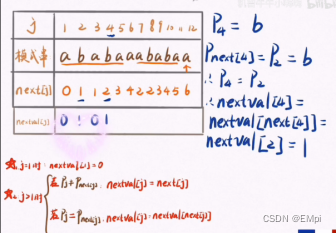 j 1 2 3 4 5 6 7 8 9 10 11 12
模式串 a b a b a a a b a b a a
next[j] 0 1 1 2 3 4 2 2 3 4 5 6
nextval[j] 0 1 0 1
P4 = b
Pnext[4] = P2 = b
∴ P4 = P2
∴ nextval[4] =
nextval[next[4]] =
nextval[2] = 1
j=1时: nextval[j]=0
j>1时
若Pj≠Pnext[j], nextval[j] = next[j]
若Pj=Pnext[j], nextval[j]=nextval[next[j]]
CSDN @EMpi